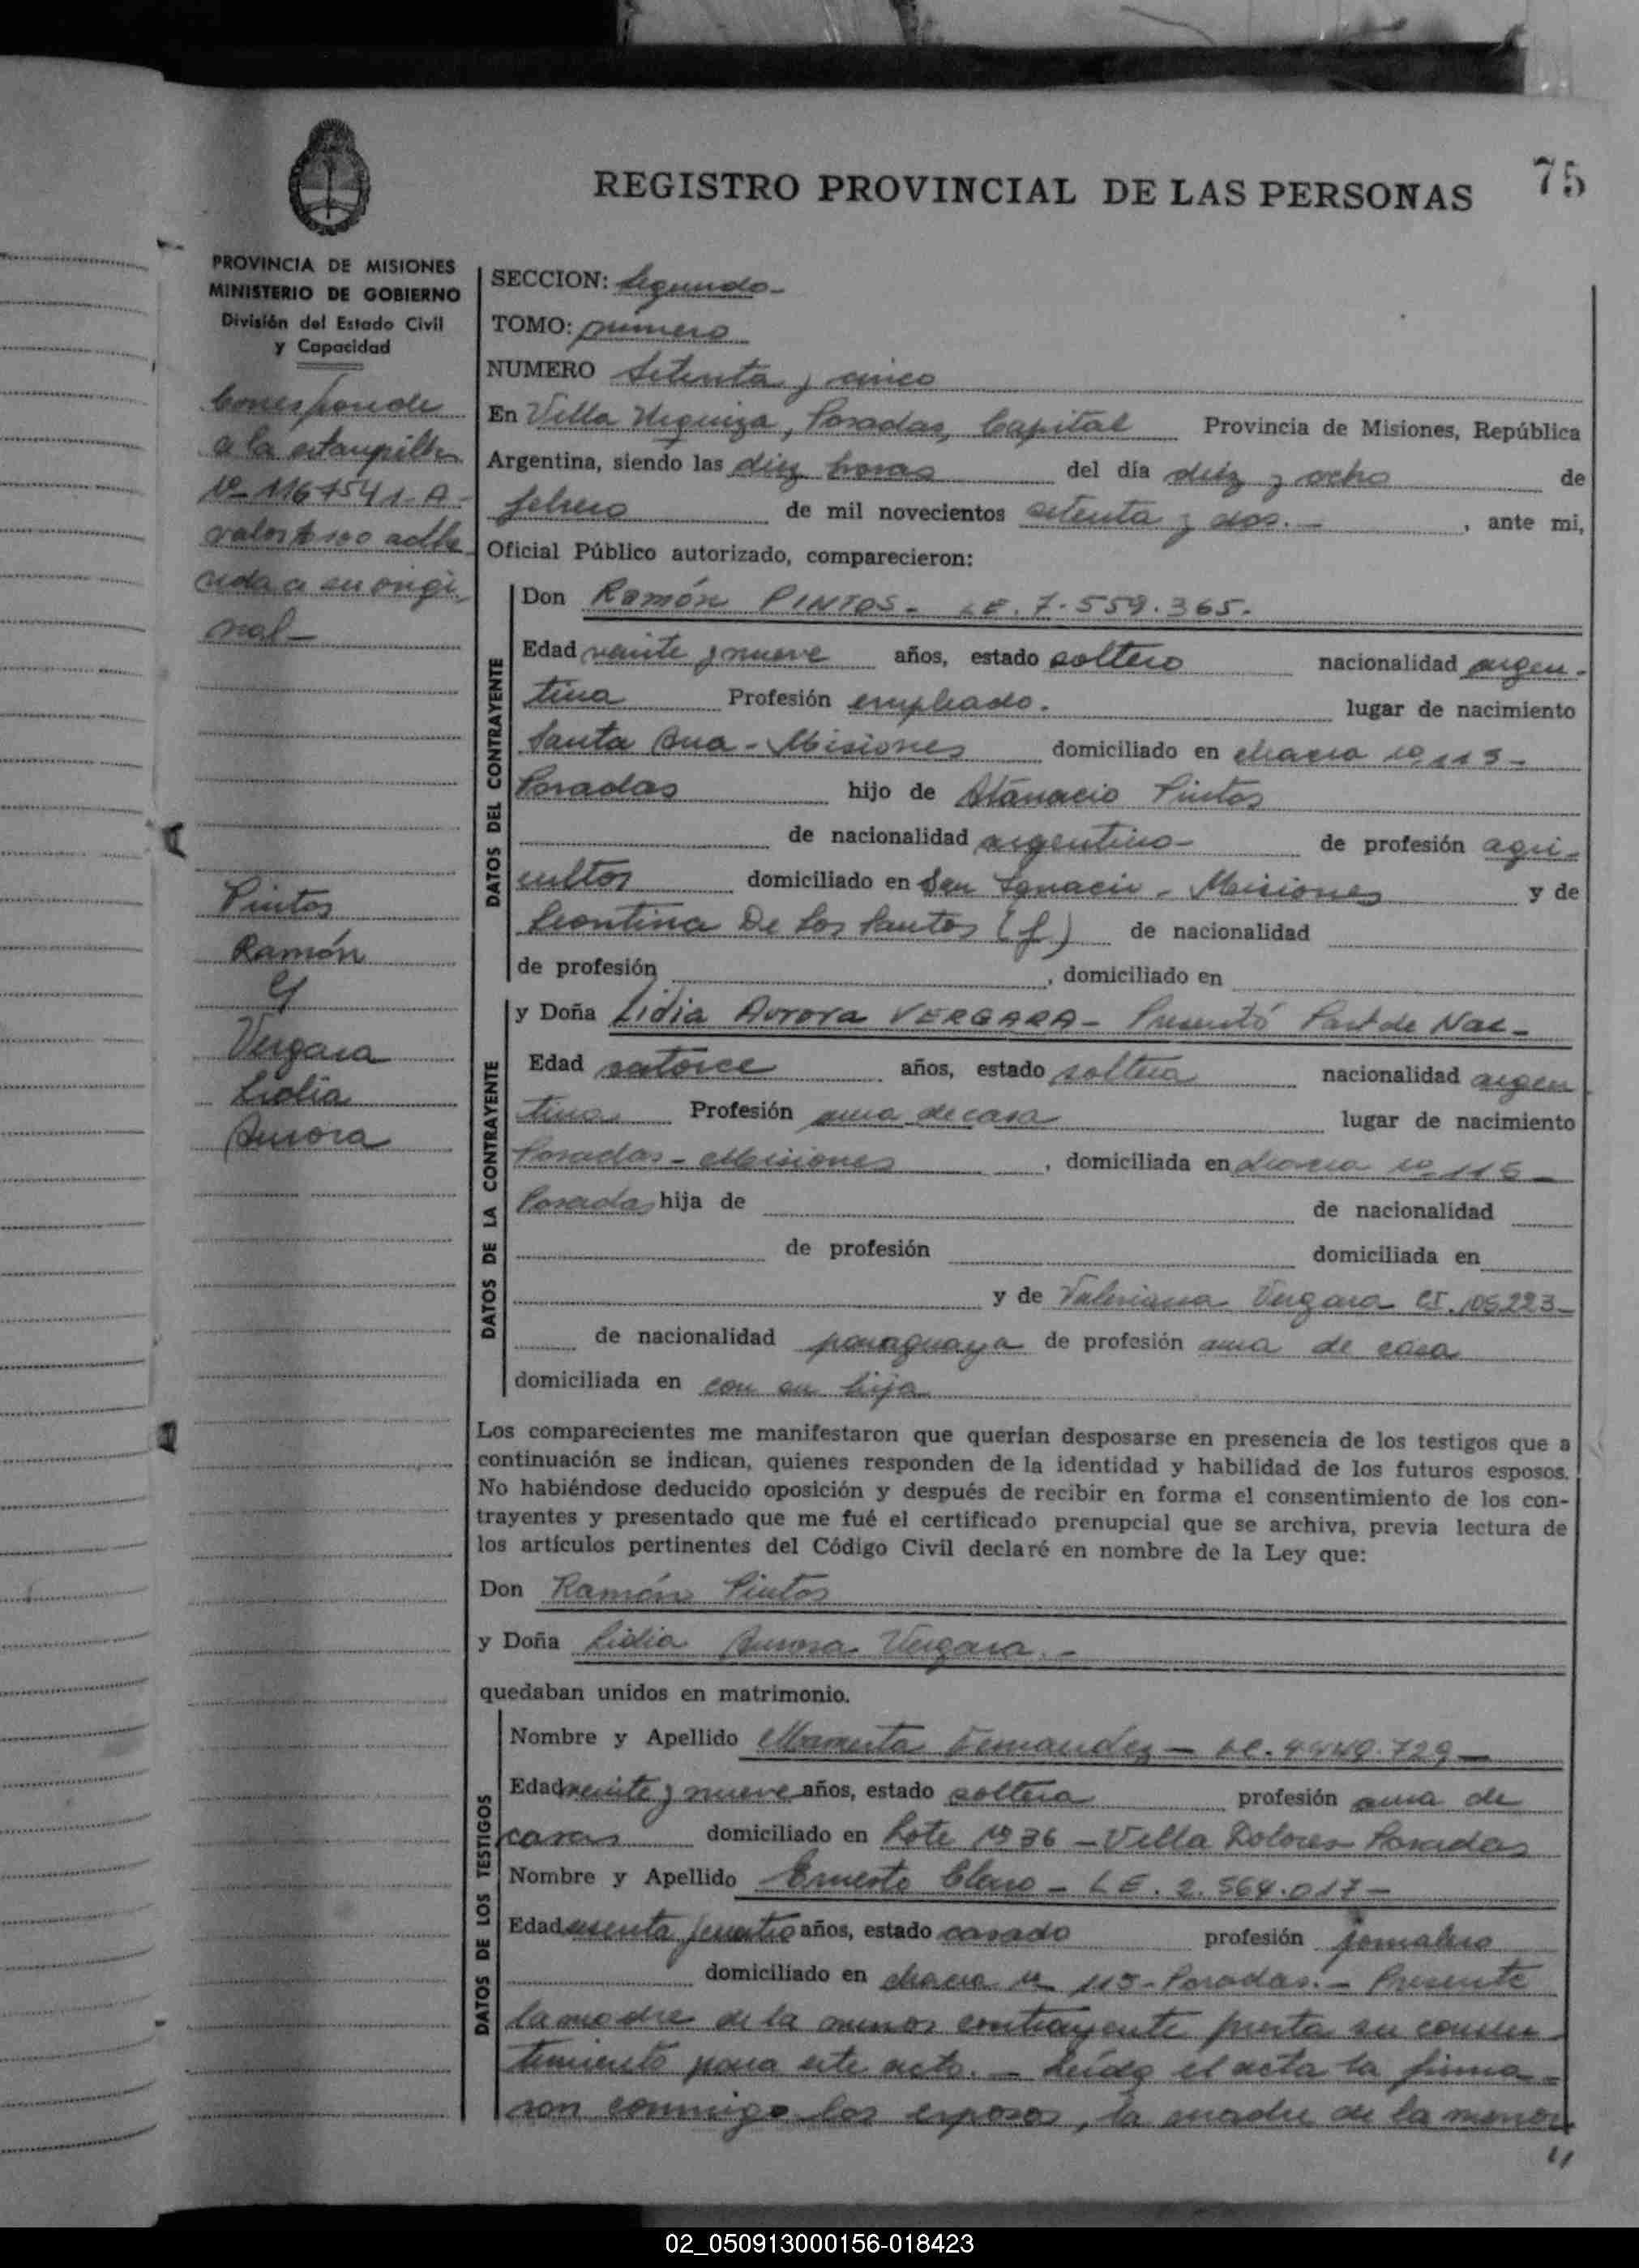 75
REGISTRO PROVINCIAL DE LAS PERSONAS
PROVINCIA DE MISIONES
MINISTERIO DE GOBIERNO
División del Estado Civil
y Capacidad
Corresponde
a la estampilla
Nº 1167541-A-
valor $ 100 adhe
rida a su origi-
nal-
Pintos
Ramón
y
Vergara
Lidia
Aurora
SECCION: Segundo-
TOMO: primero
NUMERO Setenta y cinco
En Villa Urquiza, Posadas, Capital Provincia de Misiones, República
Argentina, siendo las diez horas del día diez y ocho de
febrero de mil novecientos setenta y dos.- , ante mi,
Oficial Público autorizado, comparecieron:
DATOS DEL CONTRAYENTE
Don Ramón PINTOS- LE. 7.559.365-
Edad veinte y nueve años, estado soltero nacionalidad argen-
tina Profesión empleado. lugar de nacimiento
Santa Ana - Misiones domiciliado en chacra Nº 115-
Posadas hijo de Atanacio Pintos
de nacionalidad argentino- de profesión agri-
cultor domiciliado en San Ignacio - Misiones y de
Leontina De Los Santos (f) de nacionalidad
de profesión , domiciliado en
DATOS DE LA CONTRAYENTE
y Doña Lidia Aurora VERGARA- Presentó Part de Nac-
Edad catorce años, estado soltera nacionalidad argen
tina Profesión ama de casa lugar de nacimiento
Posadas - Misiones , domiciliada en chacra Nº 115-
Posadas hija de de nacionalidad
de profesión domiciliada en
y de Valeriana Vergara CI. 105223-
de nacionalidad paraguaya de profesión ama de casa
domiciliada en con su hija
Los comparecientes me manifestaron que querían desposarse en presencia de los testigos que a
continuación se indican, quienes responden de la identidad y habilidad de los futuros esposos.
No habiéndose deducido oposición y después de recibir en forma el consentimiento de los con-
trayentes y presentado que me fué el certificado prenupcial que se archiva, previa lectura de
los artículos pertinentes del Código Civil declaré en nombre de la Ley que:
Don Ramón Pintos
y Doña Lidia Aurora Vergara.-
quedaban unidos en matrimonio.
DATOS DE LOS TESTIGOS
Nombre y Apellido Mamerta Fernandez -
Edad veinte y nueve años, estado soltera profesión ama de
casa domiciliado en Lote Nº 36 - Villa Dolores Posadas
Nombre y Apellido Ernesto Claro - LE. 2.564.017-
Edad sesenta y cuatro años, estado casado profesión jornalero
domiciliado en chacra Nº 115-Posadas.- Presente
la madre de la menor contrayente presta su consen-
timiento para este acto.- Leída el acta la firma-
ron conmigo los esposos, la madre de la menor
//
02_050913000156-018423